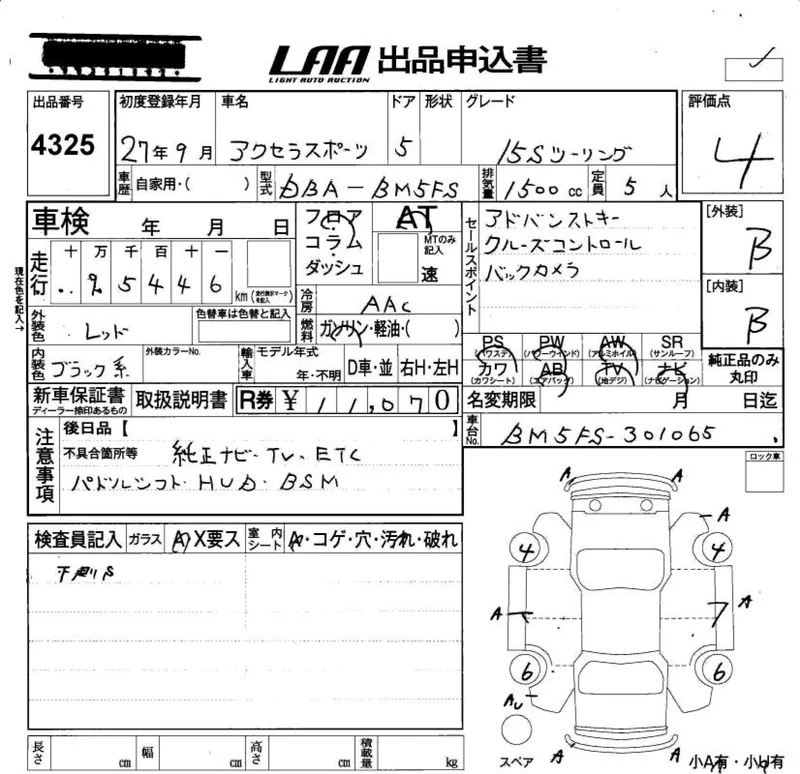 LAA 出品申込書
LIGHT AUTO AUCTION
出品番号
4325
初度登録年月 車名 ドア 形状 グレード
27年9月 アクセラスポーツ 5 15Sツーリング
評価点
4
車歴 自家用・( ) 型式 DBA-BM5FS 排気量 1500cc 定員 5人
車検 年 月 日
現在色を記入→
走行 十 万 千 百 十 一
9 5 4 4 6 km (走行表示マークを記入)
フロア
コラム
ダッシュ
AT
MTのみ記入
速
セールスポイント
アドバンストキー
クルーズコントロール
バックカメラ
[外装]
B
[内装]
B
冷房 AAC
燃料 ガソリン・軽油・( )
外装色 レッド
色替車は色替と記入
PS (パワステ) PW (パワーウインド) AW (アルミホイル) SR (サンルーフ)
カワ (カワシート) AB (エアバッグ) TV (地デジ) ナビ (ナビゲーション)
純正品のみ
丸印
内装色 ブラック系
外装カラーNo.
輸入車 モデル年式
年・不明 D車・並 右H・左H
新車保証書
ディーラー捺印あるもの
取扱説明書
R券 ¥ 11,070
名変期限 月 日迄
車台No. BM5FS-301065
注意事項
後日品【 】
不具合箇所等 純正ナビ・TV・ETC
パドルシフト・HUD・BSM
ロック車
検査員記入 ガラス A X要ス 室内シート A・コゲ・穴・汚れ・破れ
下廻りS
A A
A
4 4
A A
7
6 6
AU
A A
スペア
小A有・小U有
長さ cm 幅 cm 高さ cm 積載量 kg